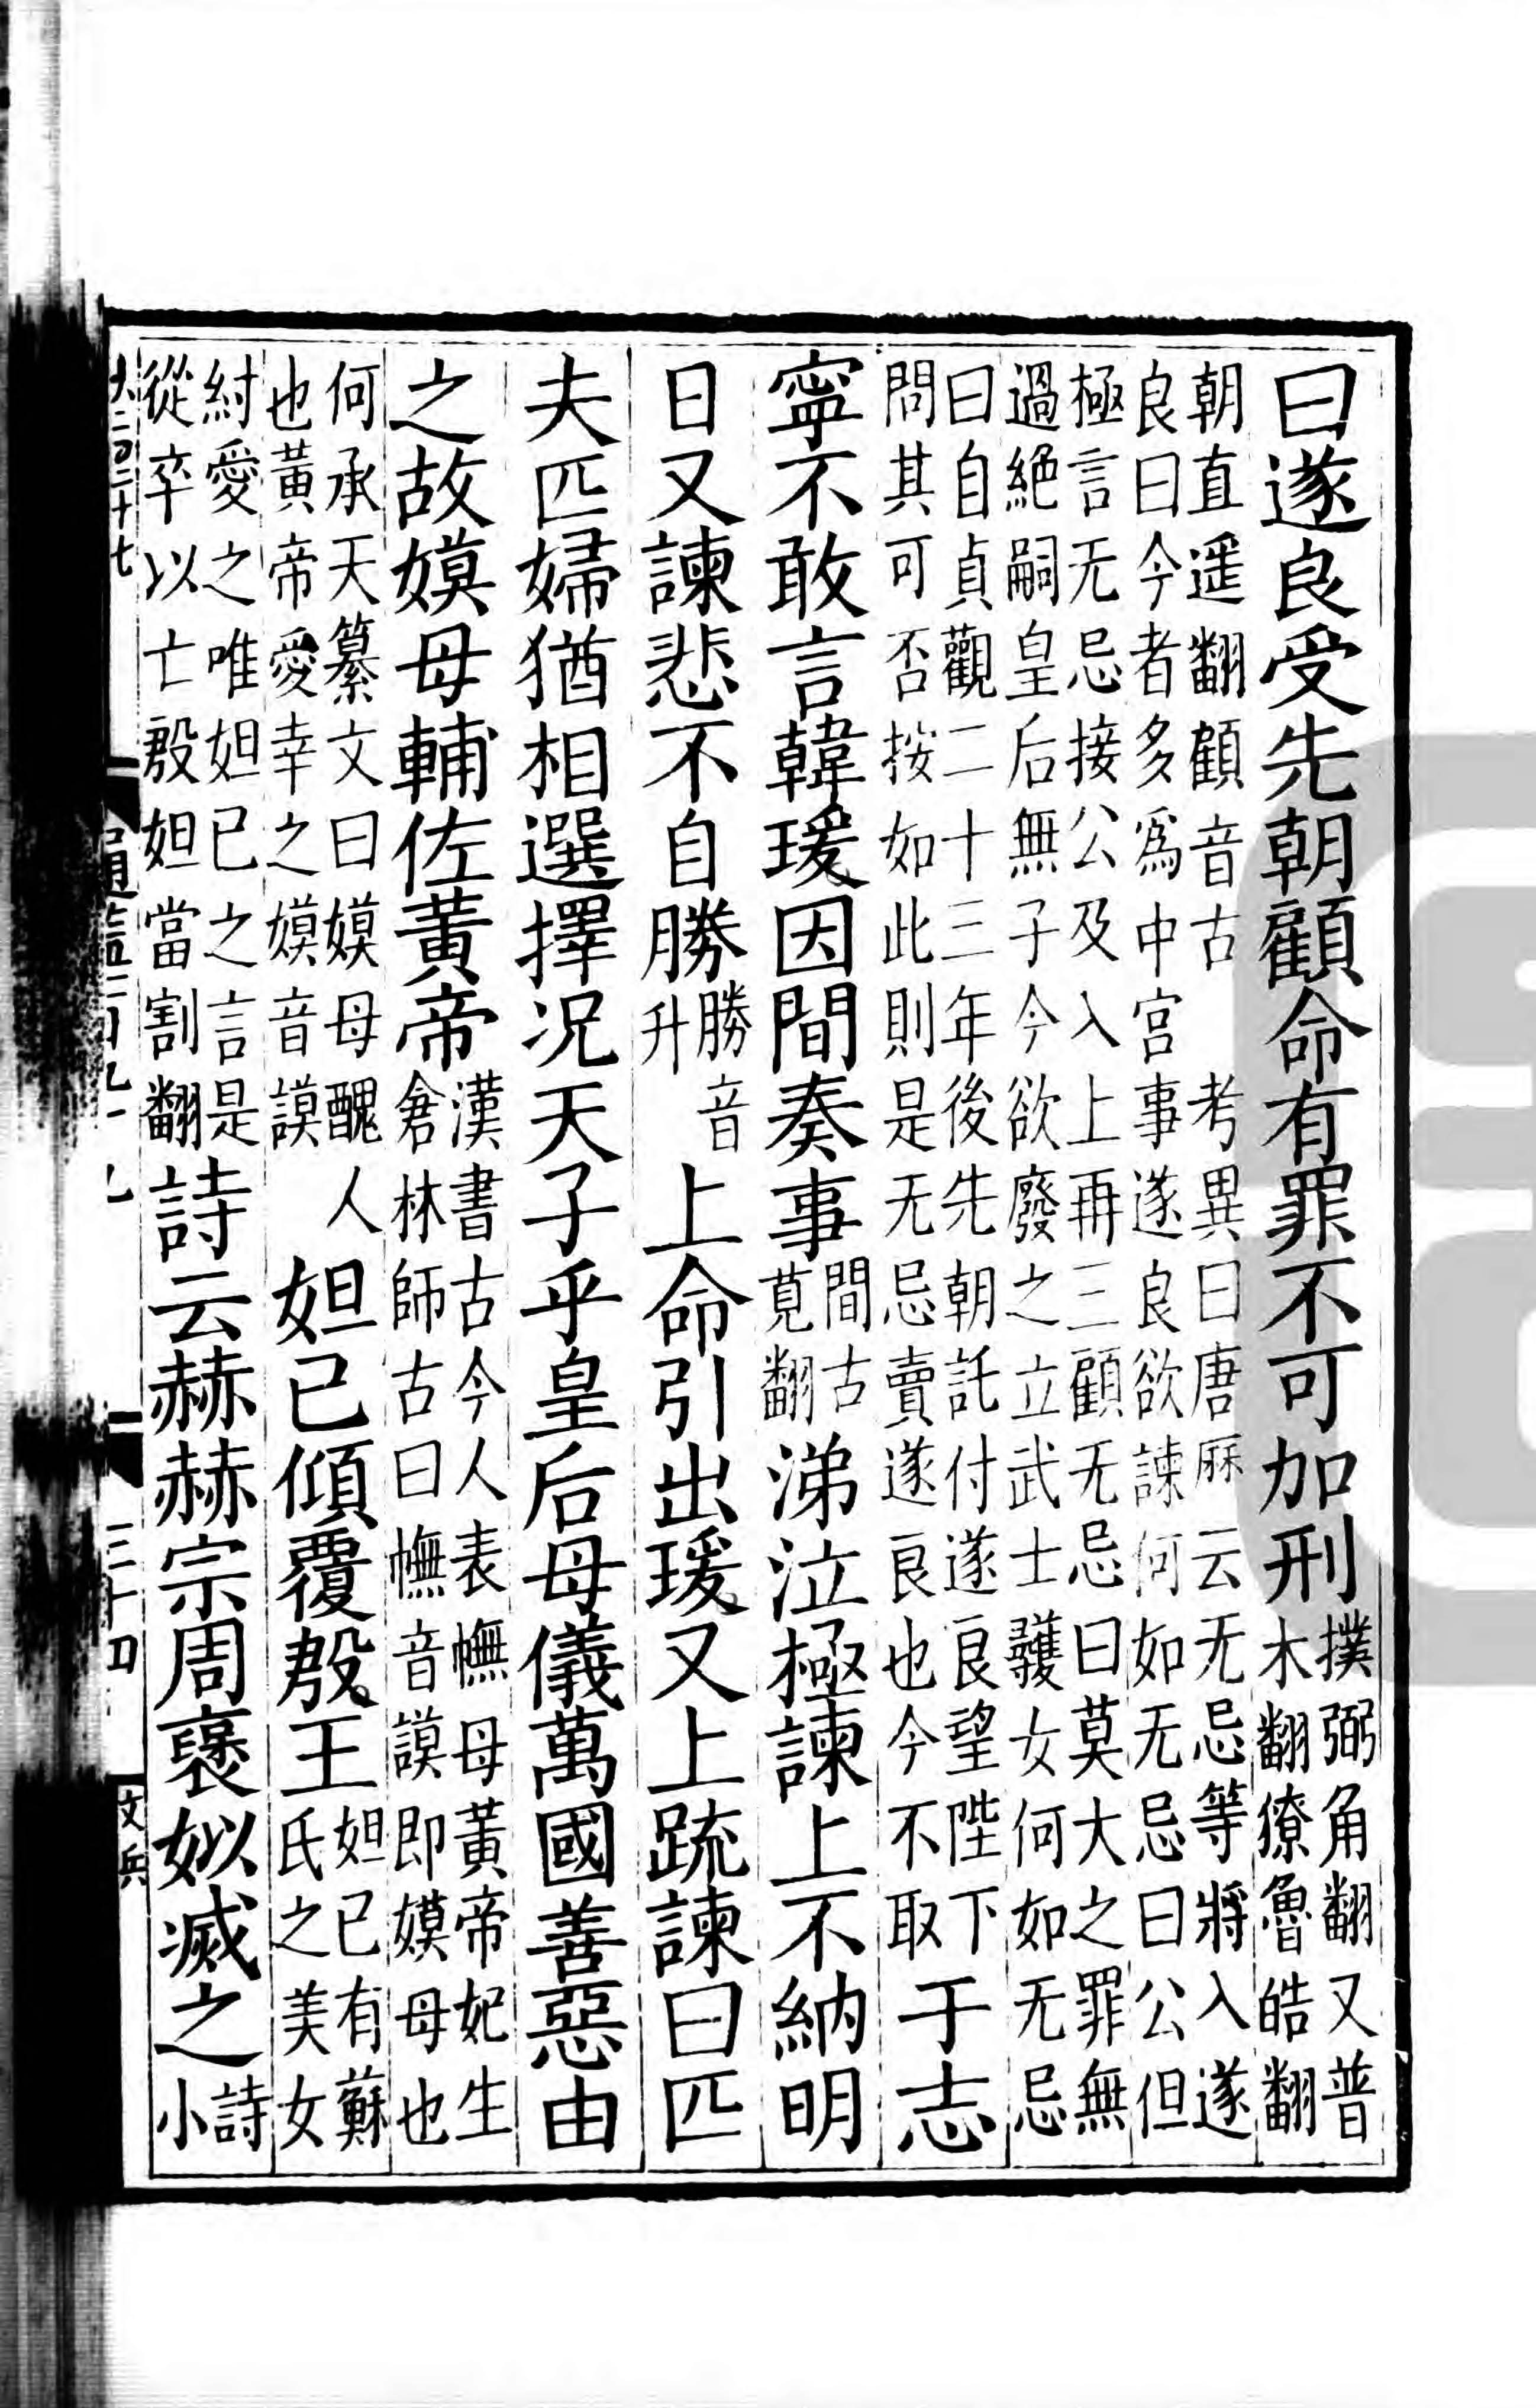 曰遂良受先朝顧命有罪不可加刑撲弼角翻又普木翻獠魯皓翻
朝直遥翻顧音古考異曰唐厤云无忌等將入遂
良曰今者多為中宫事遂良欲諫何如无忌曰公但
極言无忌接公及入上再三顧无忌曰莫大之罪無
過絶嗣皇后無子今欲廢之立武士彠女何如无忌
曰自貞觀二十三年後先朝託付遂良望陛下
問其可否按如此則是无忌賣遂良也今不取于志
寧不敢言韓瑗因間奏事間古莧翻涕泣極諫上不納明
日又諫悲不自勝勝音升上命引出瑗又上疏諫曰匹
夫匹婦猶相選擇况天子乎皇后母儀萬國善惡由
之故嫫母輔佐黃帝漢書古今人表㒇母黃帝妃生倉林師古曰㒇音謨即嫫母也
何承天纂文曰嫫母醜人
也黃帝愛幸之嫫音謨妲已傾覆殷王妲已有蘇氏之美女
紂愛之唯妲已之言是
從卒以亡殷妲當割翻詩云赫赫宗周襃姒滅之詩小
文兵